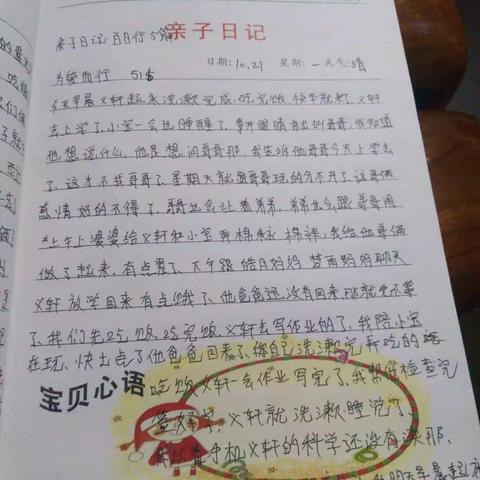 亲子日记
亲子日记 百日行 5篇
日期:10.21 星期:一 天气:晴
为爱而行 51
今天早晨义轩起来洗漱完成,吃完饭,校车就来了,义轩
去上学了,小宝一会也睡醒了,睁开眼睛就叫哥哥,我知道
他想说什么,他是想问哥哥那,我告诉他哥哥今天上学去
了,这才不找哥哥了,星期天就跟哥哥玩的分不开了这哥俩
感情好的不得了,哥哥也会让着弟弟,弟弟也会跟哥哥闹
上午上婆婆给义轩和小宝弄棉袄棉裤,我给他哥俩
做了起来,有点累了,下午跟皓月妈妈 梦雨妈妈聊天
义轩放学回来有点饿了,他爸爸还没有回来那就先不等
了,我们先吃饭,吃完饭,义轩去写作业的了,我陪小宝
在玩,快七点了他爸爸回来了,他自己洗漱完再吃的
宝贝心语
吃饭义轩一会作业写完了,我帮他检查完
签好字,义轩就洗漱睡觉了,
手机义轩的科学还没有读那,